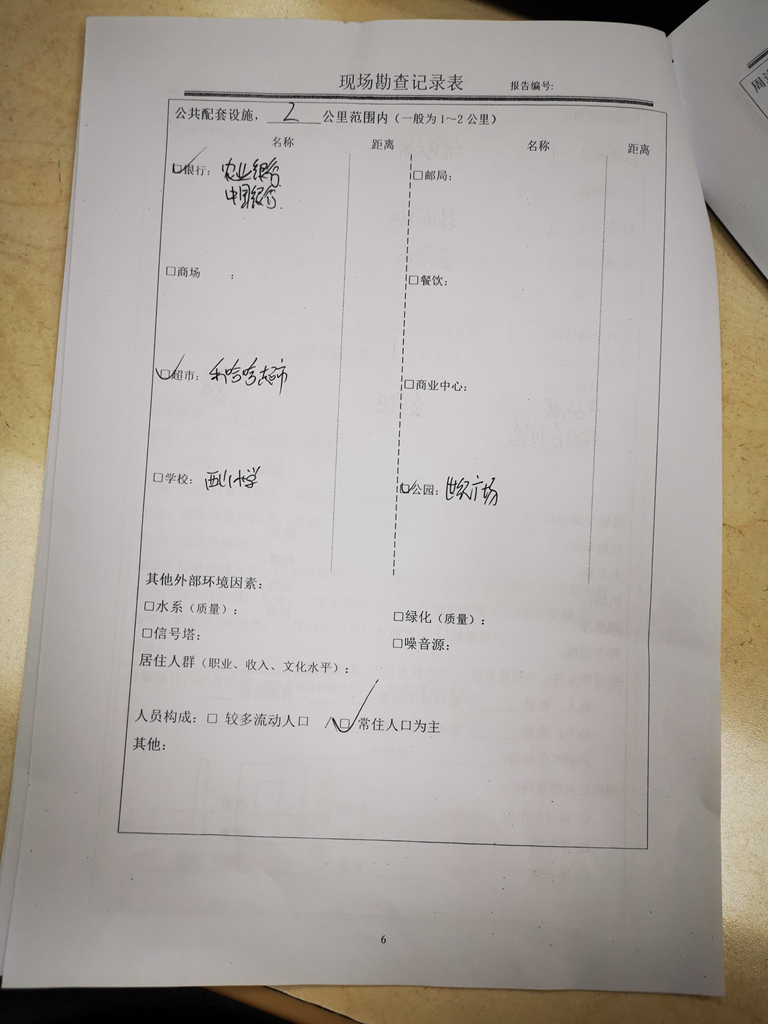 现场勘查记录表 报告编号:
公共配套设施， 2 公里范围内（一般为1～2公里）
名称 距离 名称 距离
☑银行： 农业银行 □邮局：
中国银行
□商场 ： □餐饮：
☑超市： 利哈哈超市 □商业中心：
□学校： 西山小学 ☑公园： 广场
其他外部环境因素：
□水系（质量）： □绿化（质量）：
□信号塔： □噪音源：
居住人群（职业、收入、文化水平）：
人员构成：□ 较多流动人口 / ☑ 常住人口为主
其他：
6